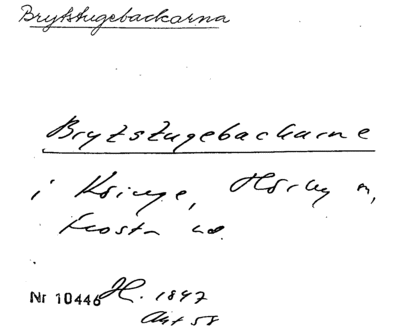 Brytstugebackarna
Brytstugebackarne
i Koinge, Hörby sn,
Frosta hd.
Nr 10446 H. 1847
Akt 58